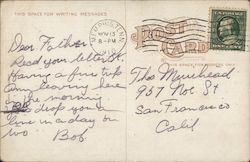 THIS SPACE FOR WRITING MESSAGES
MEMPHIS, TENN.
NOV 13
8-PM
POST CARD
Dear Father
Read your letter
Having a fine trip
Am leaving here
in the morning
drop you a
line in a day or
two
Bob
Tho Muirhead
957 Noe St
San Francisco
Calif.